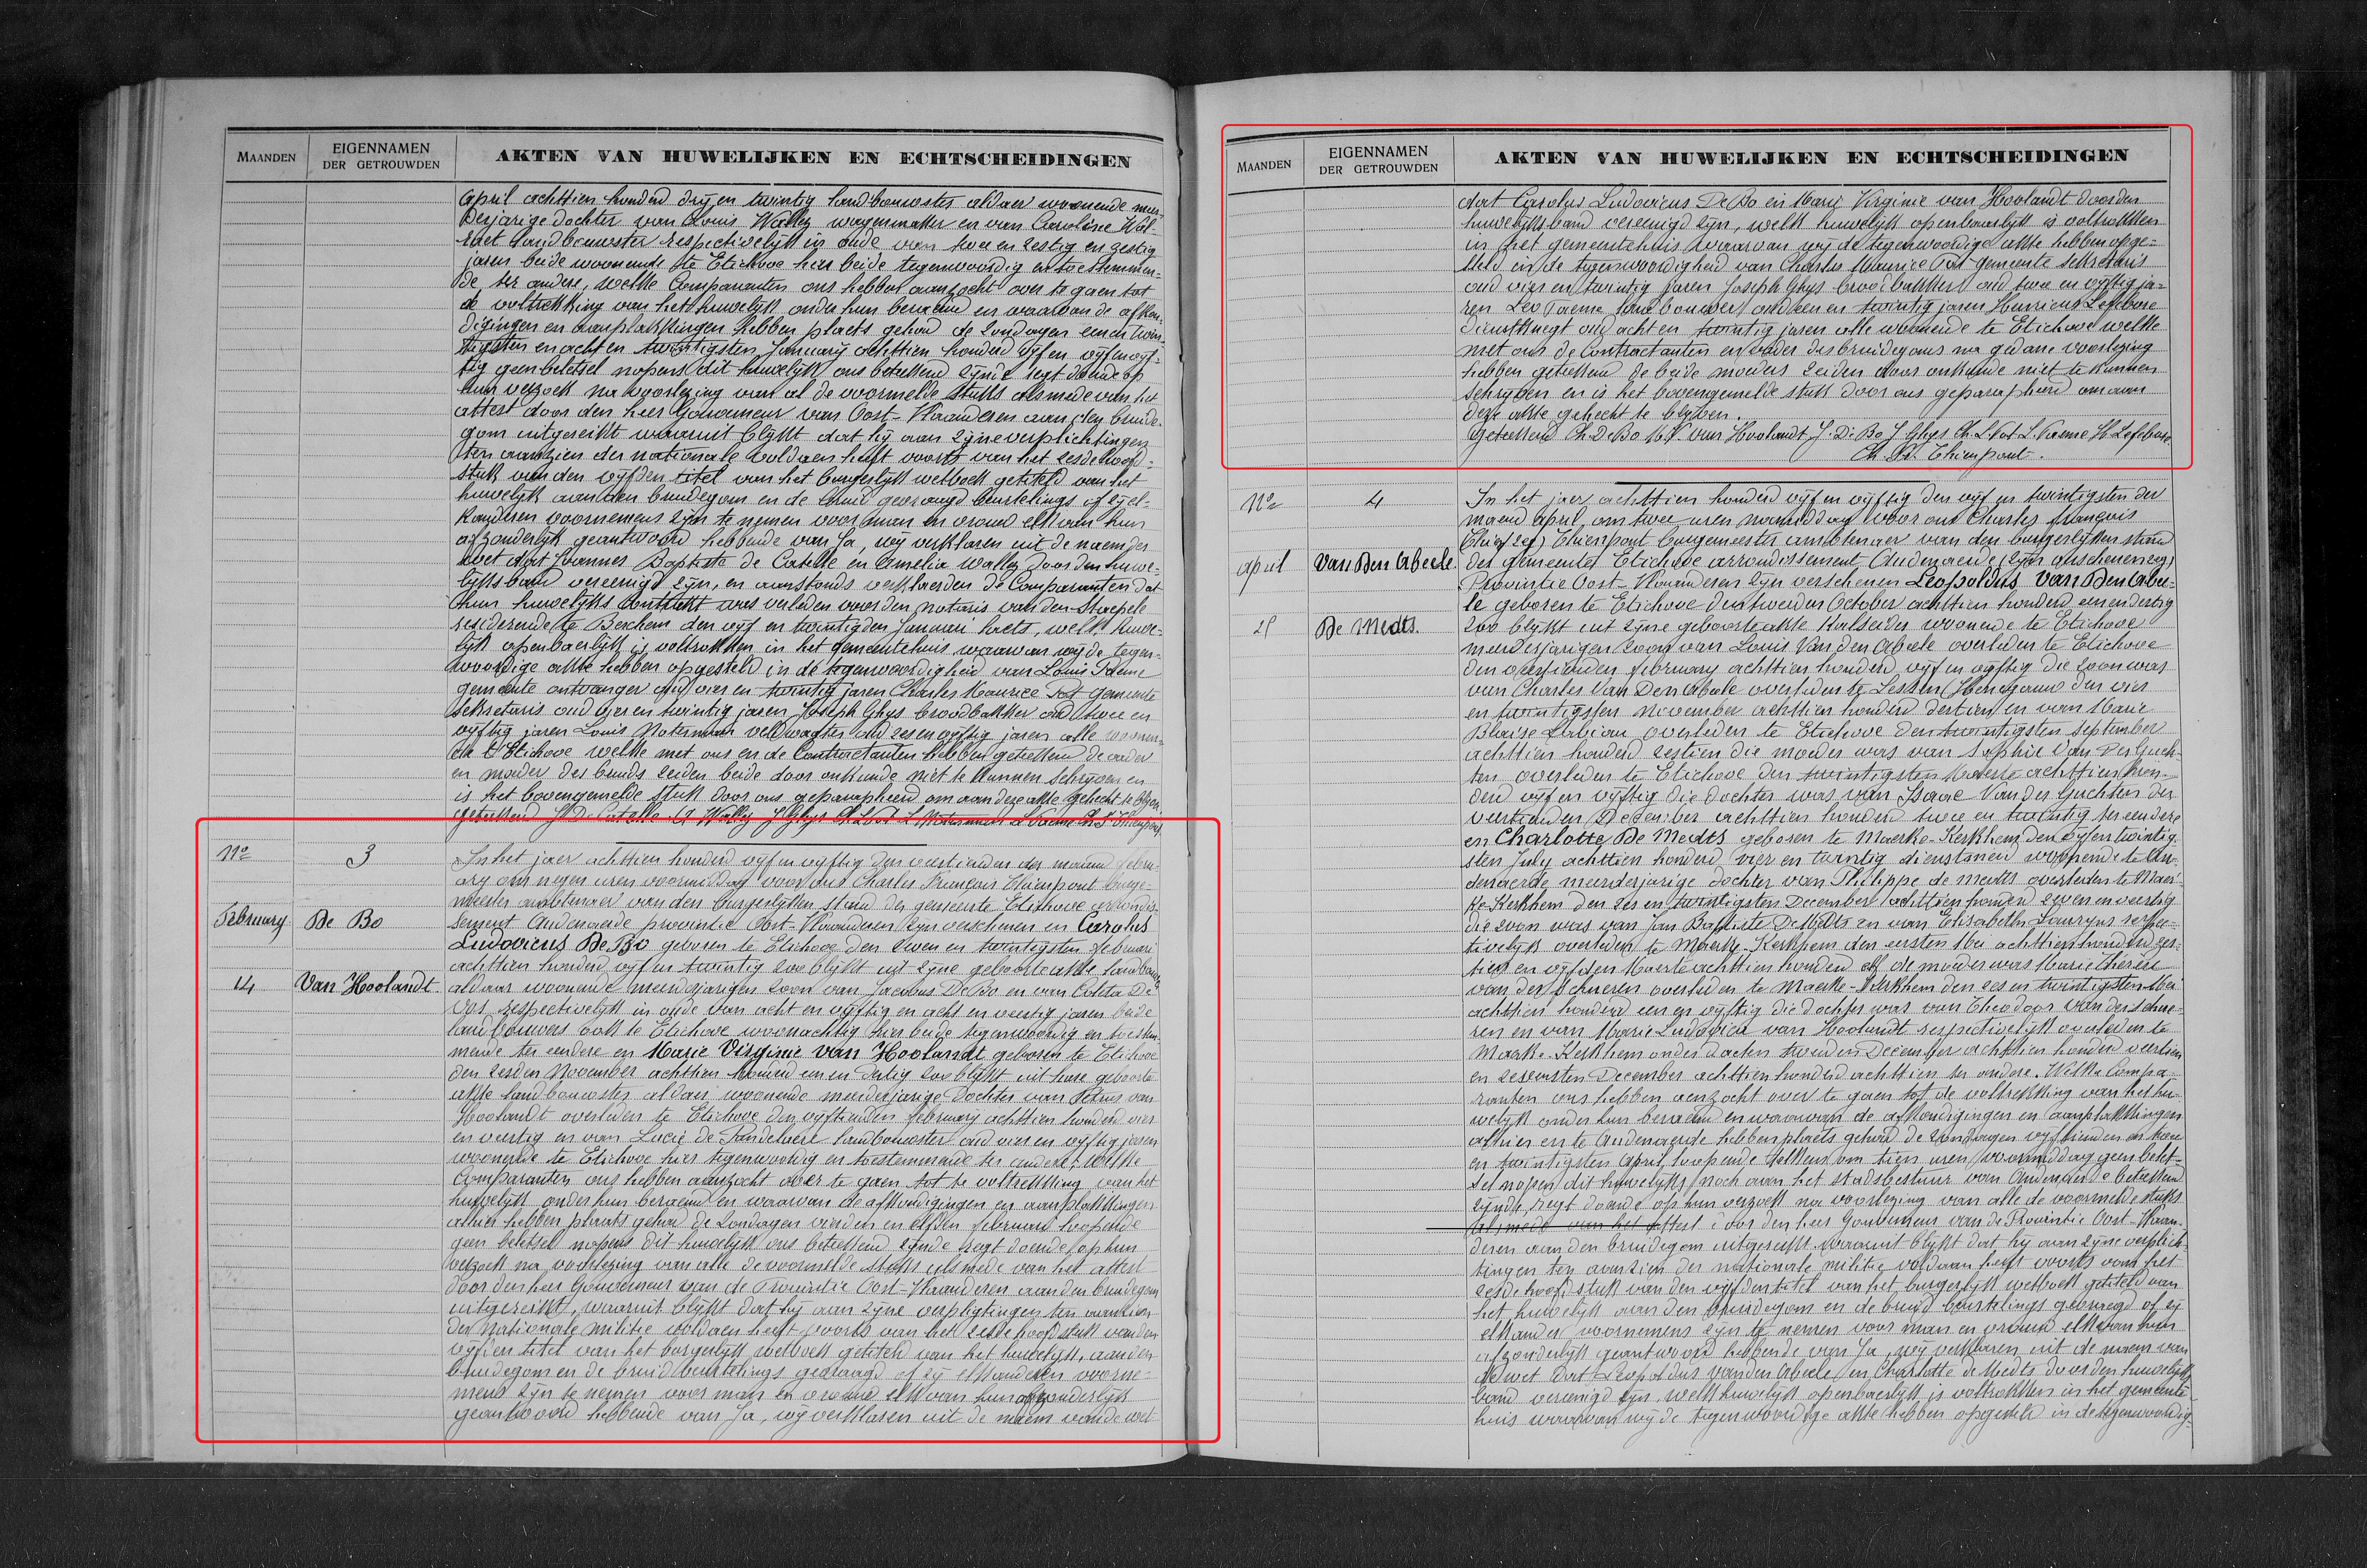 MAANDEN
EIGENNAMEN
DER GETROUWDEN
AKTEN VAN HUWELIJKEN EN ECHTSCHEIDINGEN
April achttien honderd drij en twintig landbouwster aldaer woonende meer-
derjarige dochter van Louis Walley wagenmaker en van Caroline
landbouwster respectivelijk in oude van twee en zestig en zestig
jaren beide woonende te Etichove hier beide tegenwoordig en toestemmen-
de ter andere, welke Comparanten ons hebben aanzocht over te gaen tot
de voltrekking van het huwelijk onder hun beraemd en waarvan de afkon-
digingen en aanplakkingen hebben plaets gehad de zondagen een en twin-
tigsten en acht en twintigsten January achttien honderd vijf en vijf
tig geen beletsel nopens dit huwelijk ons beteekend zijnde regt doende op
hun verzoek na voorlezing van al de voormelde stuks alsmede van het
attest door den heer Gouverneur van Oost-Vlaanderen aan den bruide-
gom uitgereikt waaruit blijkt dat hij aan zijne verplichtingen
ten aanzien der nationale voldaen heeft voorts van het zesde hoofd-
stuk van den vijfden titel van het burgerlijk wetboek getiteld van het
huwelijk aan den bruidegom en de bruid gevraagd beurtelings of zij el-
kanderen voornemens zijn te nemen voor man en vrouw elk van hun
afzonderlijk geantwoord hebbende van Ja, wij verklaren uit de naem der
wet dat Joannes Baptiste de Catelle en Amelia Walley door den huwe-
lijksband vereenigd zijn, en aanstonds verklaerden de Comparanten dat
hun huwelijks Contrakt was verleden voor den notaris van den Stacpele
residerende te Berchem den vijf en twintigden Januari laets, welk huwe-
lijk openbaerlijk is voltrokken in het gemeentehuis waarvan wij de tegen-
woordige akte hebben opgesteld in de tegenwoordigheid van Louis Taeme
gemeente ontvanger oud vier en twintig jaren Charles Maurice Vot gemeente
sekretaris oud vier en twintig jaren Joseph Ghys broodbakker oud twee en
vijftig jaren Louis Noterman veldwagter oud zes en vijftig jaren alle woonen-
de t'Etichove welke met ons en de Contractanten hebben geteekend de vader
en moeder der bruid zeiden beide door onkunde niet te kunnen schrijven en
is het bovengemelde stuk door ons geparapheerd om aan deze akte gehecht te blijven
geteekend J De Catelle A Walley J Ghys
No 3
February
14
De Bo
Van Hoolandt
In het jaer achttien honderd vijf en vijftig den veertienden der maand febru-
ary om negen uren voormiddag voor ons Charles François Thienpont burge-
meester ambtenaer van den burgerlijken stand der gemeente Etichove arrondis-
sement Audenaerde provintie Oost-Vlaanderen zijn verschenen en Carolus
Ludovicus De Bo geboren te Etichove den zeven en twintigsten februari
achttien honderd vijf en twintig zoo blijkt uit zijne geboorteakte landbouwer
aldaar woonende meerderjarigen zoon van Jacobus De Bo en van Coleta De
Vos respectivelijk in oude van acht en vijftig en acht en veertig jaren beide
landbouwers ook te Etichove woonachtig hier beide tegenwoordig en toestem-
mende ter eendere en Marie Virginie van Hoolandt geboren te Etichove
den zesden November achttien honderd een en dertig zoo blijkt uit hare geboorte
akte landbouwster aldaer woonende meerderjarige Dochter van Petrus van
Hoolandt overleden te Etichove den vijftienden february achttien honderd vier
en veertig en van Lucie de landbouwster oud vier en vijftig jaren
woonende te Etichove hier tegenwoordig en toestemmende ter andere; welke
Comparanten ons hebben aanzocht over te gaen tot de voltrekking van het
huwelijk onder hun beraemd en waarvan de afkondigingen en aanplakkingen
alhier hebben plaats gehad de Zondagen vierden en elfden februari loopende
geen beletsel nopens dit huwelijk ons beteekend zijnde regt doende op hun
verzoek na voorlezing van alle de voormelde stuks alsmede van het attest
door den heer Gouverneur van de Provintie Oost-Vlaanderen aan den bruidegom
uitgereikt, waaruit blijkt dat hij aan zijne verpligtingen ten aanzien
der Nationale Militie voldaen heeft voorts van het zesde hoofdstuk van den
vijfden titel van het burgerlijk wetboek getiteld van het huwelijk, aan den
bruidegom en de bruid beurtelings gevraagd of zij elkanderen voorne-
mens zijn te nemen voor man en vrouw elk van hun afzonderlijk
geantwoord hebbende van Ja, wij verklaren uit de naem van de wet
MAANDEN
EIGENNAMEN
DER GETROUWDEN
AKTEN VAN HUWELIJKEN EN ECHTSCHEIDINGEN
dat Carolus Ludovicus De Bo en Marie Virginie van Hoolandt door den
huwelijksband vereenigd zijn, welk huwelijk openbaarlijk is voltrokken
in het gemeentehuis waarvan wij de tegenwoordige akte hebben opge-
steld in de tegenwoordigheid van Charles Maurice Vot gemeente sekretaris
oud vier en twintig jaren Joseph Ghys broodbakker oud twee en vijftig ja-
ren Leo Taeme landbouwer oud een en twintig jaren Henricus Lefebvre
dienstknegt oud acht en twintig jaren alle woonende te Etichove welke
met ons de Contractanten en vader des bruidegoms na gedane voorlezing
hebben geteekend de beide moeders zeiden door onkunde niet te kunnen
schrijven en is het bovengemelde stuk door ons geparapheerd om aan
deze akte gehecht te blijven.
Geteekend Ch. De Bo M V van Hoolandt J. De Bo J Ghys Ch. L. Vot L. Taeme H Lefebvre
Ch. Fr. Thienpont.
No 4
april
25
Van Den Abeele
De Medts.
In het jaer achttien honderd vijf en vijftig den vijf en twintigsten der
maand april, om twee uren namiddag voor ons Charles françois
Thienpont burgemeester ambtenaer van den burgerlijken stand
der gemeente Etichove arrondissement Audenaerde (zijn
Provintie Oost-Vlaanderen zijn verschenen Leopoldus Van Den Abee-
le geboren te Etichove den tweeden October achttien honderd een en dertig
zoo blijkt uit zijne geboorteakte woonende te Etichove
meerderjarigen zoon van Louis Van den Abeele overleden te Etichove
den veertienden february achttien honderd vijf en vijftig die zoon was
van Charles Van Den Abeele overleden te Lessen (Henegauw) den vier
en twintigsten November achttien honderd dertien en van Marie
Blaise overleden te Etichove den twintigsten september
achttien honderd zestien die moeder was van Sophie Van Der Guch-
ten overleden te Etichove den twintigsten Maerte achttien hon-
derd vijf en vijftig die dochter was van Isaac Van der Guchten den
veertienden December achttien honderd twee en twintig ter eendere
en Charlotte De Medts geboren te Maerke-Kerkhem den vijf en twintig-
sten July achttien honderd vier en twintig dienstmeid woonende te Au-
denaerde meerderjarige dochter van Philippe de Medts overleden te Maer-
ke-Kerkhem den zes en twintigsten December achttien honderd zeven en veertig
die zoon was van Jan Baptiste De Medts en van Elisabeth respec-
tivelijk overleden te Maerke-Kerkhem den eersten Mei achttien honderd zes-
tien en vijfden Maerte achttien honderd elf de moeder was Marie Thérèse
van der Schueren overleden te Maerke-Kerkhem den zes en twintigsten Mei
achttien honderd een en vijftig die dochter was van Theodoor Van der Schue-
ren en van Marie Ludovica van Hoolandt respectivelijk overleden te
Maerke-Kerkhem onder daeten tweeden December achttien honderd veertien
en zesentsten December achttien honderd achttien ter andere. Welke Compa-
ranten ons hebben aenzocht over te gaen tot de voltrekking van het hu-
welijk onder hun beraemd en waarvan de afkondigingen en aanplakkingen
alhier en te Audenaerde hebben plaets gehad de Zondagen vijftienden en twee
en twintigsten April loopende telkens om tien uren voormiddag geen belet-
sel nopens dit huwelijk, noch aan het stadsbestuur van Audenaerde beteekend
zijnde, regt doende op hun verzoek na voorlezing van alle de voormelde stuks
alsmede van het attest door den heer Gouverneur van de Provintie Oost-Vlaan-
deren aan den bruidegom uitgereikt waaruit blijkt dat hij aan zijne verplich-
tingen ten aanzien der nationale militie voldaan heeft voorts van het
zesde hoofdstuk van den vijfden titel van het burgerlijk wetboek getiteld van
het huwelijk aan den bruidegom en de bruid beurtelings gevraegd of zij
elkander voornemens zijn te nemen voor man en vrouw elk van hun
afzonderlijk geantwoord hebbende van Ja, wij verklaren uit de naem van
de wet dat Leopoldus van den Abeele en Charlotte de Medts door den huwelijks
band vereenigd zijn, welk huwelijk openbaerlijk is voltrokken in het gemeente
huis waarvan wij de tegenwoordige akte hebben opgesteld in de tegenwoordig-